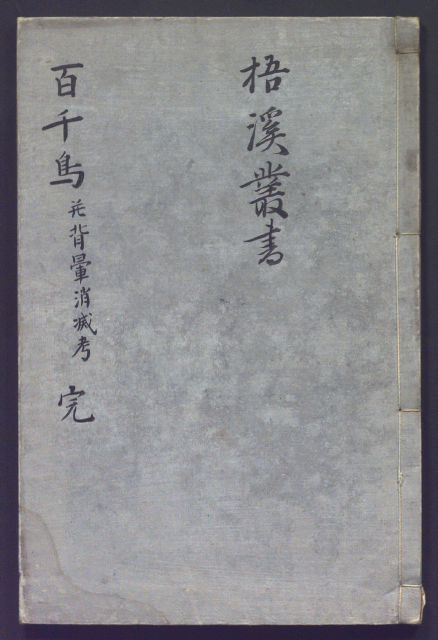 梧溪叢書
百千鳥 并背暈消滅考 完